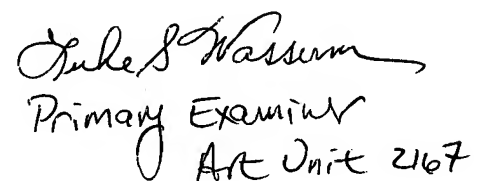 Luke S Wasserman
Primary Examiner
Art Unit 2167